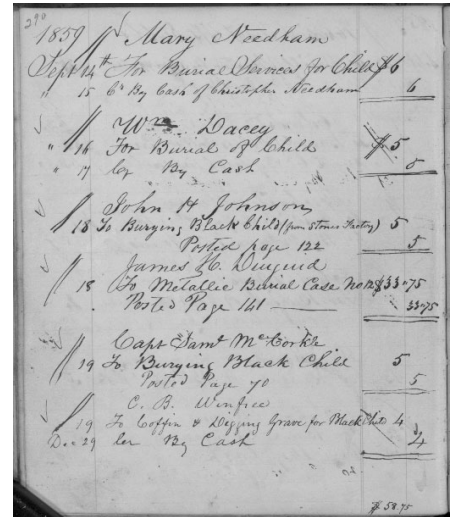 290
1859 Mary Needham
Sept 14th For Burial Services for Child $6
" 15 Cr By Cash of Christopher Needham 6
Wm Dacey
" 16 For Burial of Child $5
" 17 Cr By Cash 5
John H Johnson
18 To Burying Black Child (from Stones Factory) 5
Posted page 122 5
James H. Diuguid
18 To Metallic Burial Case No 12 $33"75
Posted Page 141 33"75
Capt Saml McCorkle
19 To Burying Black Child 5
Posted Page 70 5
C. B. Winfree
19 To Coffin & Digging Grave for Black Child 4
Dec 29 Cr By Cash 4
$58.75